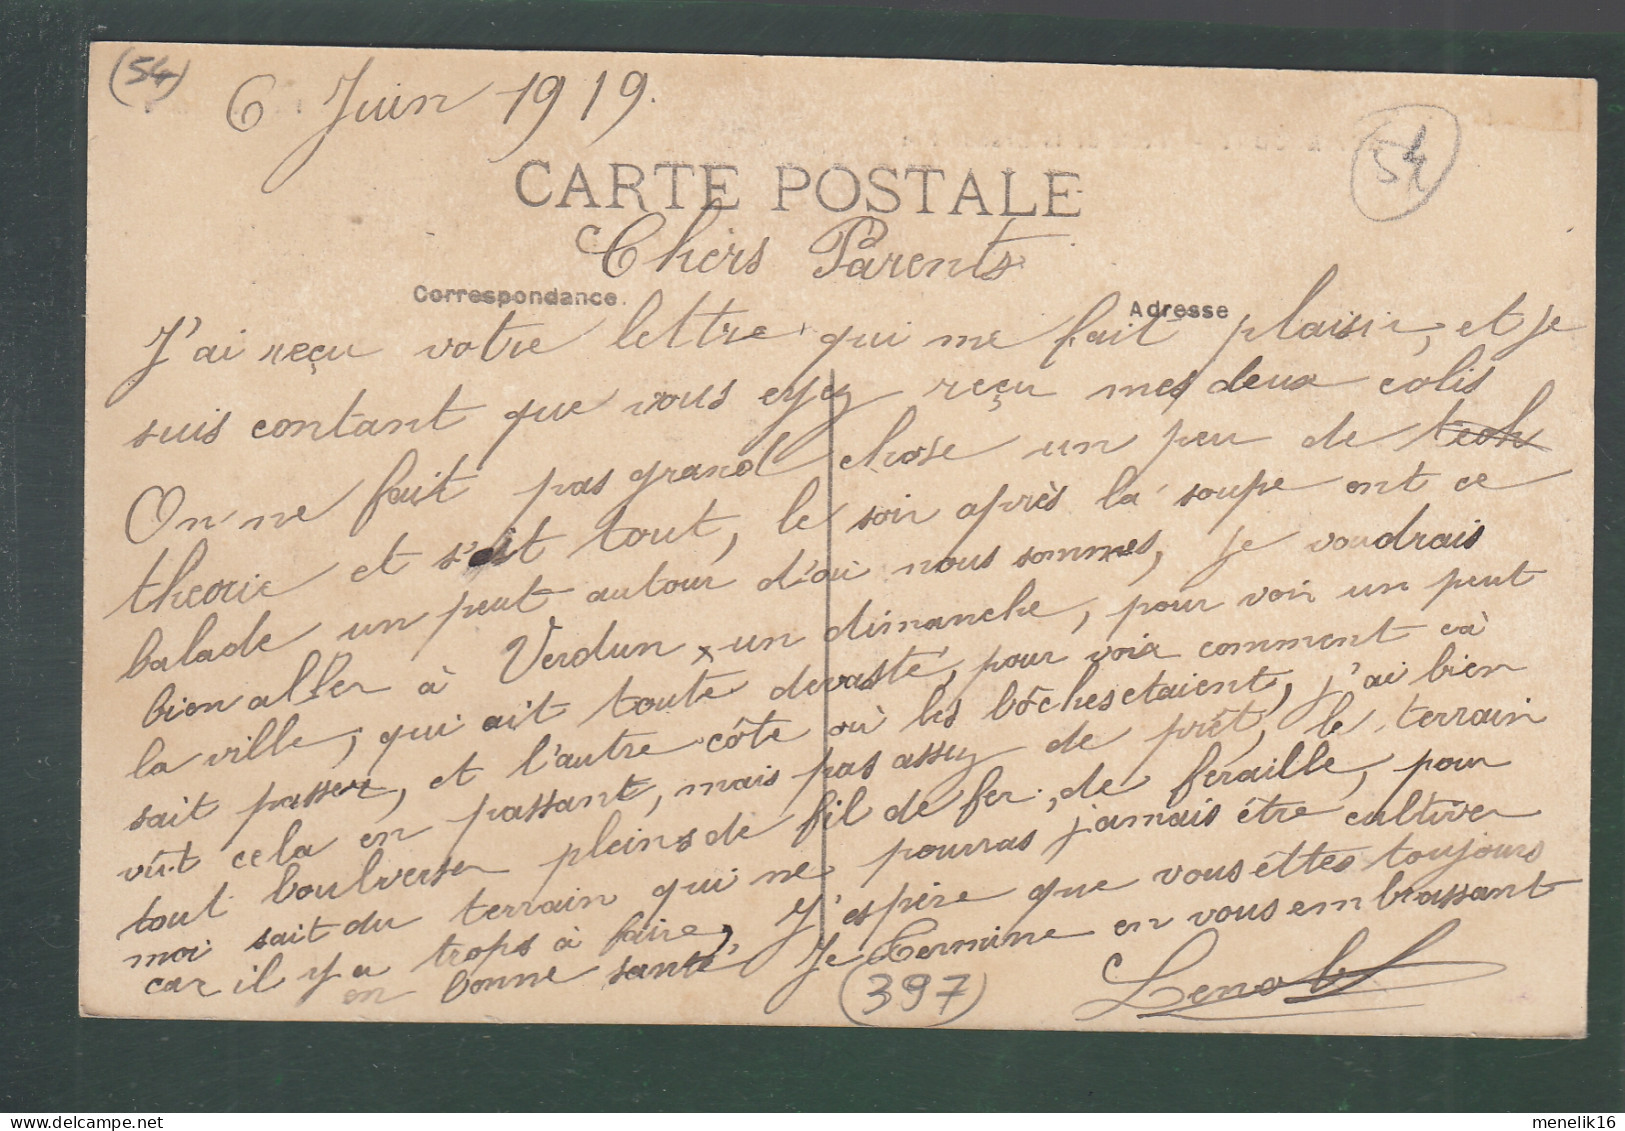 (54)
6 Juin 1919.
54
CARTE POSTALE
Chèrs Parents
Correspondance
Adresse
J'ai reçu votre lettre qui me fait plaisir, et je
suis contant que vous eyez reçu mes deux colis
On ne fait pas grand chose un peu de teoh
theorie et s'est tout, le soir après la soupe ont ce
balade un peut autour d'où nous sommes, je voudrais
bien aller à Verdun x un dimanche, pour voir un peut
la ville, qui ait toute devasté, pour voir comment cà
sait passer, et l'autre côte où les bôches etaient, j'ai bien
vût cela en passant, mais pas assez de prêt, le terrain
tout boulverser pleins de fil de fer, de feraille, pour
moi sait du terrain qui ne pourras jamais être cultiver
car il y a trops à faire, J'espère que vous êttes toujours
en bonne santé, Je termine en vous embrassant
(397)
Lenoble
menelik16